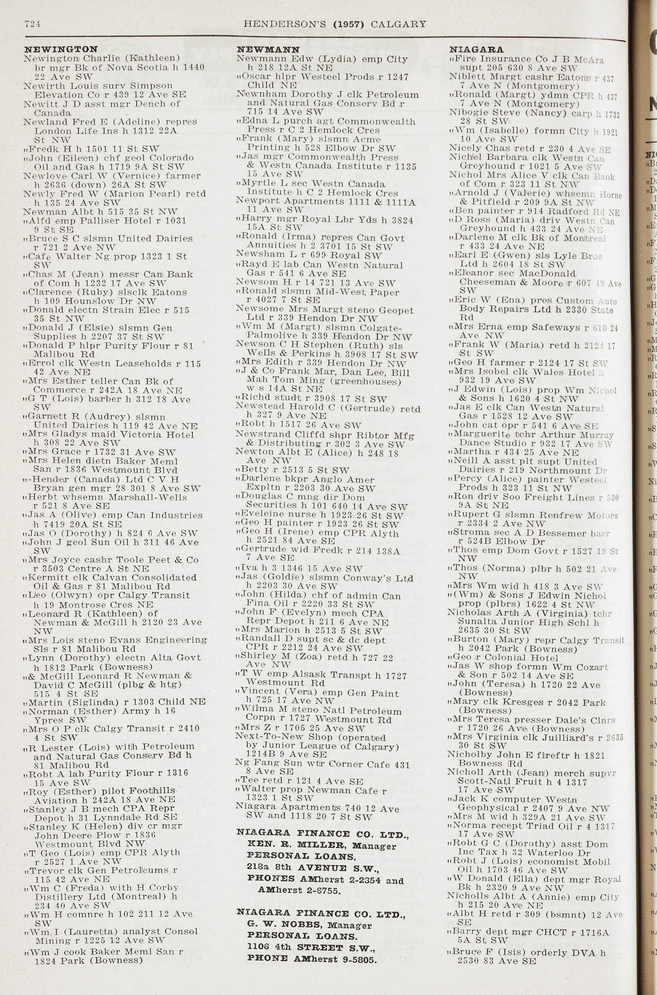 724
HENDERSON'S (1957) CALGARY
NEWINGTON
Newington Charlie (Kathleen)
br mgr Bk of Nova Scotia h 1440
22 Ave SW
Newirth Louis surv Simpson
Elevation Co r 439 12 Ave SE
Newitt J D asst mgr Dench of
Canada
Newland Fred E (Adeline) repres
London Life Ins h 1312 22A
St NW
„Fredk H h 1501 11 St SW
„John (Eileen) chf geol Colorado
Oil and Gas h 1719 9A St SW
Newlove Carl W (Vernice) farmer
h 2636 (down) 26A St SW
Newly Fred W (Marion Pearl) retd
h 135 24 Ave SW
Newman Albt h 515 35 St NW
„Alfd emp Palliser Hotel r 1031
9 St SE
„Bruce S C slsmn United Dairies
r 721 2 Ave NW
„Cafe Walter Ng prop 1323 1 St
SW
„Chas M (Jean) messr Can Bank
of Com h 1232 17 Ave SW
„Clarence (Ruby) slsclk Eatons
h 109 Hounslow Dr NW
„Donald electn Strain Elec r 515
35 St NW
„Donald J (Elsie) slsmn Gen
Supplies h 2207 37 St SW
„Donald P hlpr Purity Flour r 81
Malibou Rd
„Errol clk Westn Leaseholds r 115
42 Ave NE
„Mrs Esther teller Can Bk of
Commerce r 242A 18 Ave NE
„G T (Lois) barber h 312 18 Ave
SW
„Garnett R (Audrey) slsmn
United Dairies h 119 42 Ave NE
„Mrs Gladys maid Victoria Hotel
h 308 22 Ave SW
„Mrs Grace r 1732 31 Ave SW
„Mrs Helen dietn Baker Meml
San r 1836 Westmount Blvd
„-Hender (Canada) Ltd C V H
Bryan gen mgr 28 301 8 Ave SW
„Herbt whsemn Marshall-Wells
r 521 8 Ave SE
„Jas A (Olive) emp Can Industries
h 7419 20A St SE
„Jas O (Dorothy) h 824 6 Ave SW
„John J geol Sun Oil h 311 46 Ave
SW
„Mrs Joyce cashr Toole Peet & Co
r 3503 Centre A St NE
„Kermitt clk Calvan Consolidated
Oil & Gas r 81 Malibou Rd
„Leo (Olwyn) opr Calgy Transit
h 19 Montrose Cres NE
„Leonard R (Kathleen) of
Newman & McGill h 2120 23 Ave
NW
„Mrs Lois steno Evans Engineering
Sls r 81 Malibou Rd
„Lynn (Dorothy) electn Alta Govt
h 1812 Park (Bowness)
„& McGill Leonard R Newman &
David C McGill (plbg & htg)
515 4 St SE
„Martin (Siglinda) r 1303 Child NE
„Norman (Esther) Army h 16
Ypres SW
„Mrs O P clk Calgy Transit r 2410
4 St SW
„R Lester (Lois) with Petroleum
and Natural Gas Conserv Bd h
81 Malibou Rd
„Robt A lab Purity Flour r 1316
15 Ave SW
„Roy (Esther) pilot Foothills
Aviation h 242A 18 Ave NE
„Stanley J B mech CPA Repr
Depot h 31 Lynndale Rd SE
„Stanley K (Helen) div cr mgr
John Deere Plow r 1836
Westmount Blvd NW
„T Geo (Lois) emp CPR Alyth
r 2527 1 Ave NW
„Trevor clk Gen Petroleums r
115 42 Ave NE
„Wm C (Freda) with H Corby
Distillery Ltd (Montreal) h
234 40 Ave SW
„Wm H comnre h 102 211 12 Ave
SW
„Wm I (Lauretta) analyst Consol
Mining r 1225 12 Ave SW
„Wm J cook Baker Meml San r
1824 Park (Bowness)
NEWMANN
Newmann Edw (Lydia) emp City
h 218 12A St NE
„Oscar hlpr Westeel Prods r 1247
Child NE
Newnham Dorothy J clk Petroleum
and Natural Gas Conserv Bd r
715 14 Ave SW
„Edna L purch agt Commonwealth
Press r C 2 Hemlock Cres
„Frank (Mary) slsmn Acme
Printing h 528 Elbow Dr SW
„Jas mgr Commonwealth Press
& Westn Canada Institute r 1135
15 Ave SW
„Myrtle L sec Westn Canada
Institute h C 2 Hemlock Cres
Newport Apartments 1111 & 1111A
11 Ave SW
„Harry mgr Royal Lbr Yds h 3824
15A St SW
„Ronald (Irma) repres Can Govt
Annuities h 2 3701 15 St SW
Newsham L r 699 Royal SW
„Rayd E lab Can Westn Natural
Gas r 541 6 Ave SE
Newsom H r 14 721 13 Ave SW
„Ronald slsmn Mid-West Paper
r 4027 7 St SE
Newsome Mrs Margt steno Geopet
Ltd r 339 Hendon Dr NW
„Wm M (Margt) slsmn Colgate-
Palmolive h 339 Hendon Dr NW
Newson C H Stephen (Ruth) sls
Wells & Perkins h 3908 17 St SW
„Mrs Edith r 339 Hendon Dr NW
„J & Co Frank Mar, Dan Lee, Bill
Mah Tom Ming (greenhouses)
w s 14A St NE
„Richd studt r 3908 17 St SW
Newstead Harold C (Gertrude) retd
h 327 9 Ave NE
„Robt h 1517 26 Ave SW
Newstrand Cliffd shpr Ribtor Mfg
& Distributing r 302 3 Ave SW
Newton Albt E (Alice) h 248 18
Ave NW
„Betty r 2513 5 St SW
„Darlene bkpr Anglo Amer
Expltn r 2203 30 Ave SW
„Douglas C mng dir Dom
Securities h 101 640 14 Ave SW
„Eveleine nurse h 1923 26 St SW
„Geo H painter r 1923 26 St SW
„Geo H (Irene) emp CPR Alyth
h 2521 84 Ave SE
„Gertrude wid Fredk r 214 138A
7 Ave SE
„Iva h 3 1346 15 Ave SW
„Jas (Goldie) slsmn Conway's Ltd
h 2203 30 Ave SW
„John (Hilda) chf of admin Can
Fina Oil r 2220 33 St SW
„John F (Evelyn) mech CPA
Repr Depot h 211 6 Ave NE
„Mrs Marion h 2513 5 St SW
„Randall D supt sc & dc dept
CPR r 2212 24 Ave SW
„Shirley M (Zoa) retd h 727 22
Ave NW
„T W emp Alsask Transpt h 1727
Westmount Rd
„Vincent (Vera) emp Gen Paint
h 725 17 Ave NW
„Wilma M steno Natl Petroleum
Corpn r 1727 Westmount Rd
„Mrs Z r 1705 25 Ave SW
Next-To-New Shop (operated
by Junior League of Calgary)
1214B 9 Ave SE
Ng Fang Sun wtr Corner Cafe 431
8 Ave SE
„Tee retd r 121 4 Ave SE
„Walter prop Newman Cafe r
1323 1 St SW
Niagara Apartments 740 12 Ave
SW and 1118 20 7 St SW
NIAGARA FINANCE CO. LTD.,
KEN. R. MILLER, Manager
PERSONAL LOANS.
218a 8th AVENUE S.W.,
PHONES AMherst 2-2354 and
AMherst 2-6755.
NIAGARA FINANCE CO. LTD.,
G. W. NOBBS, Manager
PERSONAL LOANS.
1106 4th STREET S.W.,
PHONE AMherst 9-5805.
NIAGARA
„Fire Insurance Co J B McAra
supt 205 630 8 Ave SW
Niblett Margt cashr Eatons r 437
7 Ave N (Montgomery)
„Ronald (Margt) ydmn CPR h 437
7 Ave N (Montgomery)
Nibogie Steve (Nancy) carp h 1723
28 St SW
„Wm (Isabelle) formn City h 1921
10 Ave SW
Nicely Chas retd r 230 4 Ave SE
Nichel Barbara clk Westn Can
Greyhound r 1021 5 Ave SW
Nichol Mrs Alice V clk Can Bank
of Com r 323 11 St NW
„Arnold J (Valerie) whsemn Horne
& Pitfield r 209 9A St NW
„Ben painter r 914 Radford Rd NE
„D Ross (Maria) driv Westn Can
Greyhound h 433 24 Ave NW
„Darlene M clk Bk of Montreal
r 433 24 Ave NE
„Earl E (Gwen) sls Lyle Bros
Ltd h 2604 18 St SW
„Eleanor sec MacDonald
Cheeseman & Moore r 607 19 Ave
SW
„Eric W (Ena) pres Custom Auto
Body Repairs Ltd h 2330 State
Rd
„Mrs Erna emp Safeways r 610 24
Ave NW
„Frank W (Maria) retd h 2124 17
St SW
„Geo H farmer r 2124 17 St SW
„Mrs Isobel clk Wales Hotel h
932 19 Ave SW
„J Edwin (Lois) prop Wm Nichol
& Sons h 1620 4 St NW
„Jas E clk Can Westn Natural
Gas r 1528 12 Ave SW
„John cat opr r 541 6 Ave SE
„Marguerite tchr Arthur Murray
Dance Studio r 932 17 Ave SW
„Martha r 434 25 Ave NE
„Neill A asst plt supt United
Dairies r 219 Northmount Dr
„Percy (Alice) painter Westeel
Prods h 323 11 St NW
„Ron driv Soo Freight Lines r 530
9A St NE
„Rupert G slsmn Renfrew Motors
r 2334 2 Ave NW
„Stroma sec A D Bessemer barr
r 524B Elbow Dr
„Thos emp Dom Govt r 1527 19 St
NW
„Thos (Norma) plbr h 502 21 Ave
NW
„Mrs Wm wid h 418 3 Ave SW
„(Wm) & Sons J Edwin Nichol
prop (plbrs) 1622 4 St NW
Nicholas Arth A (Virginia) tchr
Sunalta Junior High Schl h
2635 30 St SW
„Burton (Mary) repr Calgy Transit
h 2042 Park (Bowness)
„Geo r Colonial Hotel
„Jas W shop formn Wm Cozart
& Son r 502 14 Ave SE
„John (Teresa) h 1720 22 Ave
(Bowness)
„Mary clk Kresges r 2042 Park
(Bowness)
„Mrs Teresa presser Dale's Clnrs
r 1720 26 Ave (Bowness)
„Mrs Virginia clk Juilliard's r 2635
30 St SW
Nicholby John E fireftr h 1821
Bowness Rd
Nicholl Arth (Jean) merch supvr
Scott-Natl Fruit h 4 1317
17 Ave SW
„Jack K computer Westn
Geophysical r 2407 9 Ave NW
„Mrs M wid h 329A 21 Ave SW
„Norma recept Triad Oil r 4 1317
17 Ave SW
„Robt G C (Dorothy) asst Dom
Inc Tax h 32 Waterloo Dr
„Robt J (Lois) economist Mobil
Oil h 1703 46 Ave SW
„W Donald (Ella) dept mgr Royal
Bk h 2320 9 Ave NW
Nicholls Albt A (Annie) emp City
h 215 20 Ave NE
„Albt H retd r 309 (bsmnt) 12 Ave
SE
„Barry dept mgr CHCT r 1716A
5A St SW
„Bruce F (Isis) orderly DVA h
2530 83 Ave SE